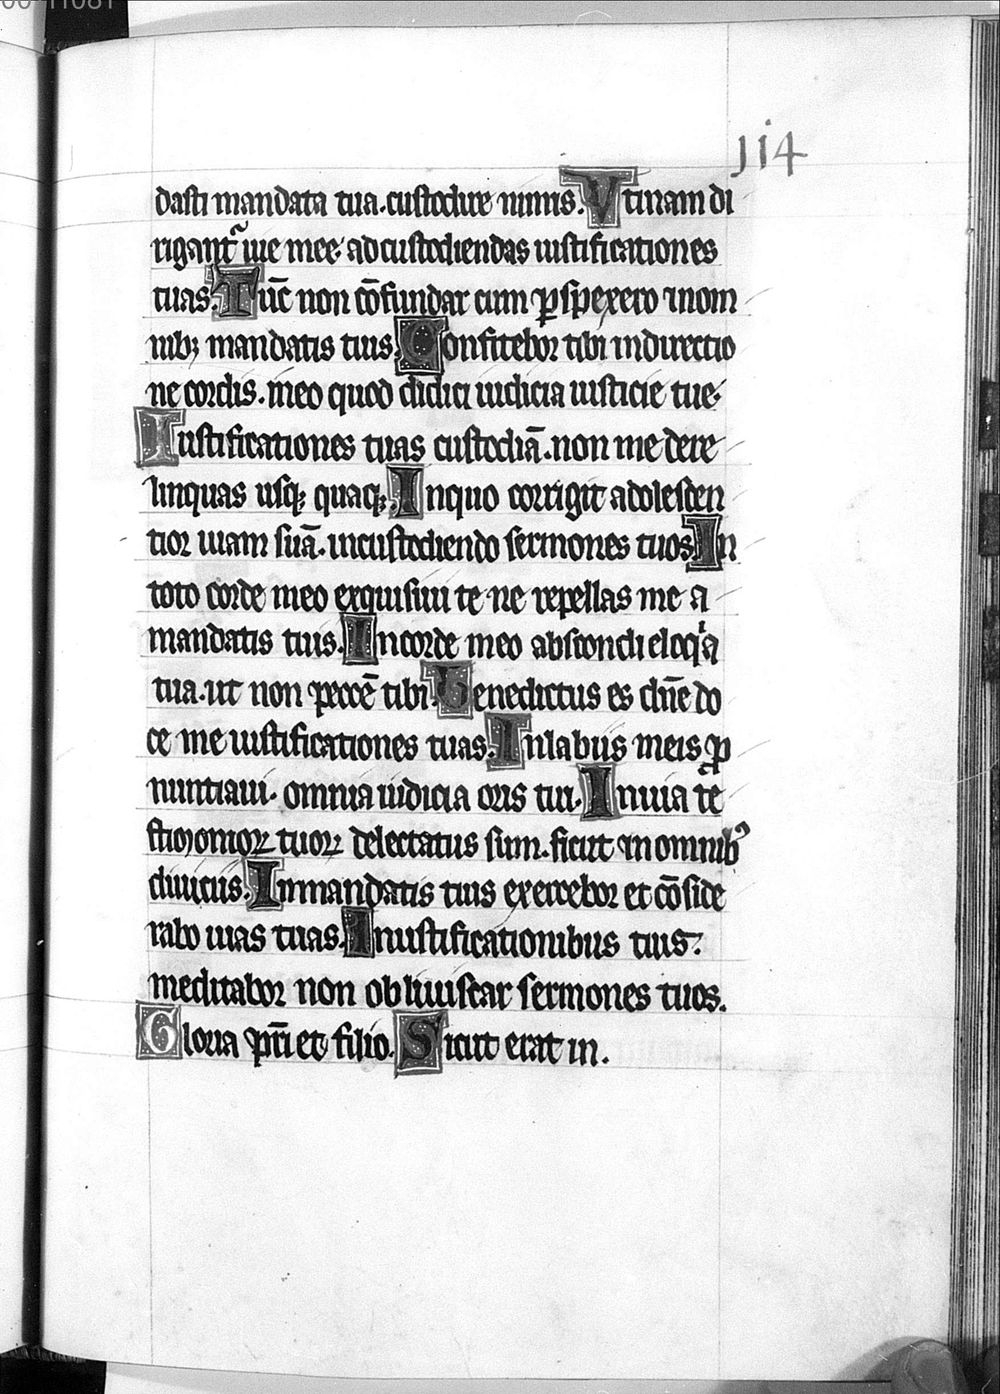 114
dasti mandata tua.custodire nimis.Vtinam di
rigant᷑ uie mee adcustodiendas iustificationes
tuas.Tūc non cōfundar cum ꝑspexero inom
nibꝫ mandatis tuis.Confitebor tibi indirectio
ne cordis.meo quod didici iudicia iusticie tue.
Iustificationes tuas custodiā.non me dere
linquas usqꝫ quaqꝫ.Inquo corrigit adolescen
tior uiam suā.incustodiendo sermones tuos.In
toto corde meo exquisiui te ne repellas me a
mandatis tuis.Incorde meo abscondi eloqͥa
tua.ut non peccē tibi.Benedictus es dn̄e do
ce me iustificationes tuas.Inlabiis meis ꝓ
nuntiaui.omnia iudicia oris tui.Inuia te
stimonioꝝ tuoꝝ delectatus sum.sicut inomnibꝰ
diuiciis.Inmandatis tuis exercebor et cōside
rabo uias tuas.Iniustificationibus tuis.
meditabor non obliuiscar sermones tuos.
Gloria pr̄i et filio.Sicut erat in.